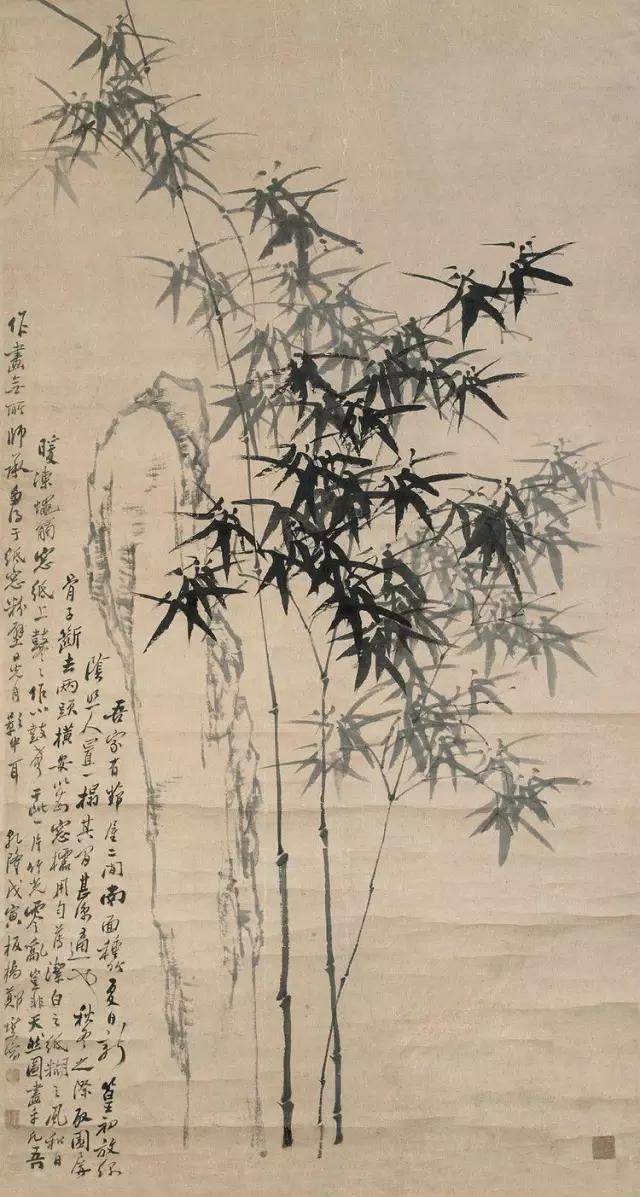 吾家有茆屋二間南面種竹夏日新篁初放綠
陰照人置一榻其間甚涼適也秋冬之際取圍屏
骨子斷去兩頭橫安以為窓櫺用勻薄潔白之紙糊之風和日
暖凍蠅觸窓紙上鼕〻作小鼓聲于此一片竹光零亂豈非天然圖畫乎凡吾
作畫無所師承多得于紙窓粉壁日光月影中耳 乾隆戊寅板橋鄭燮